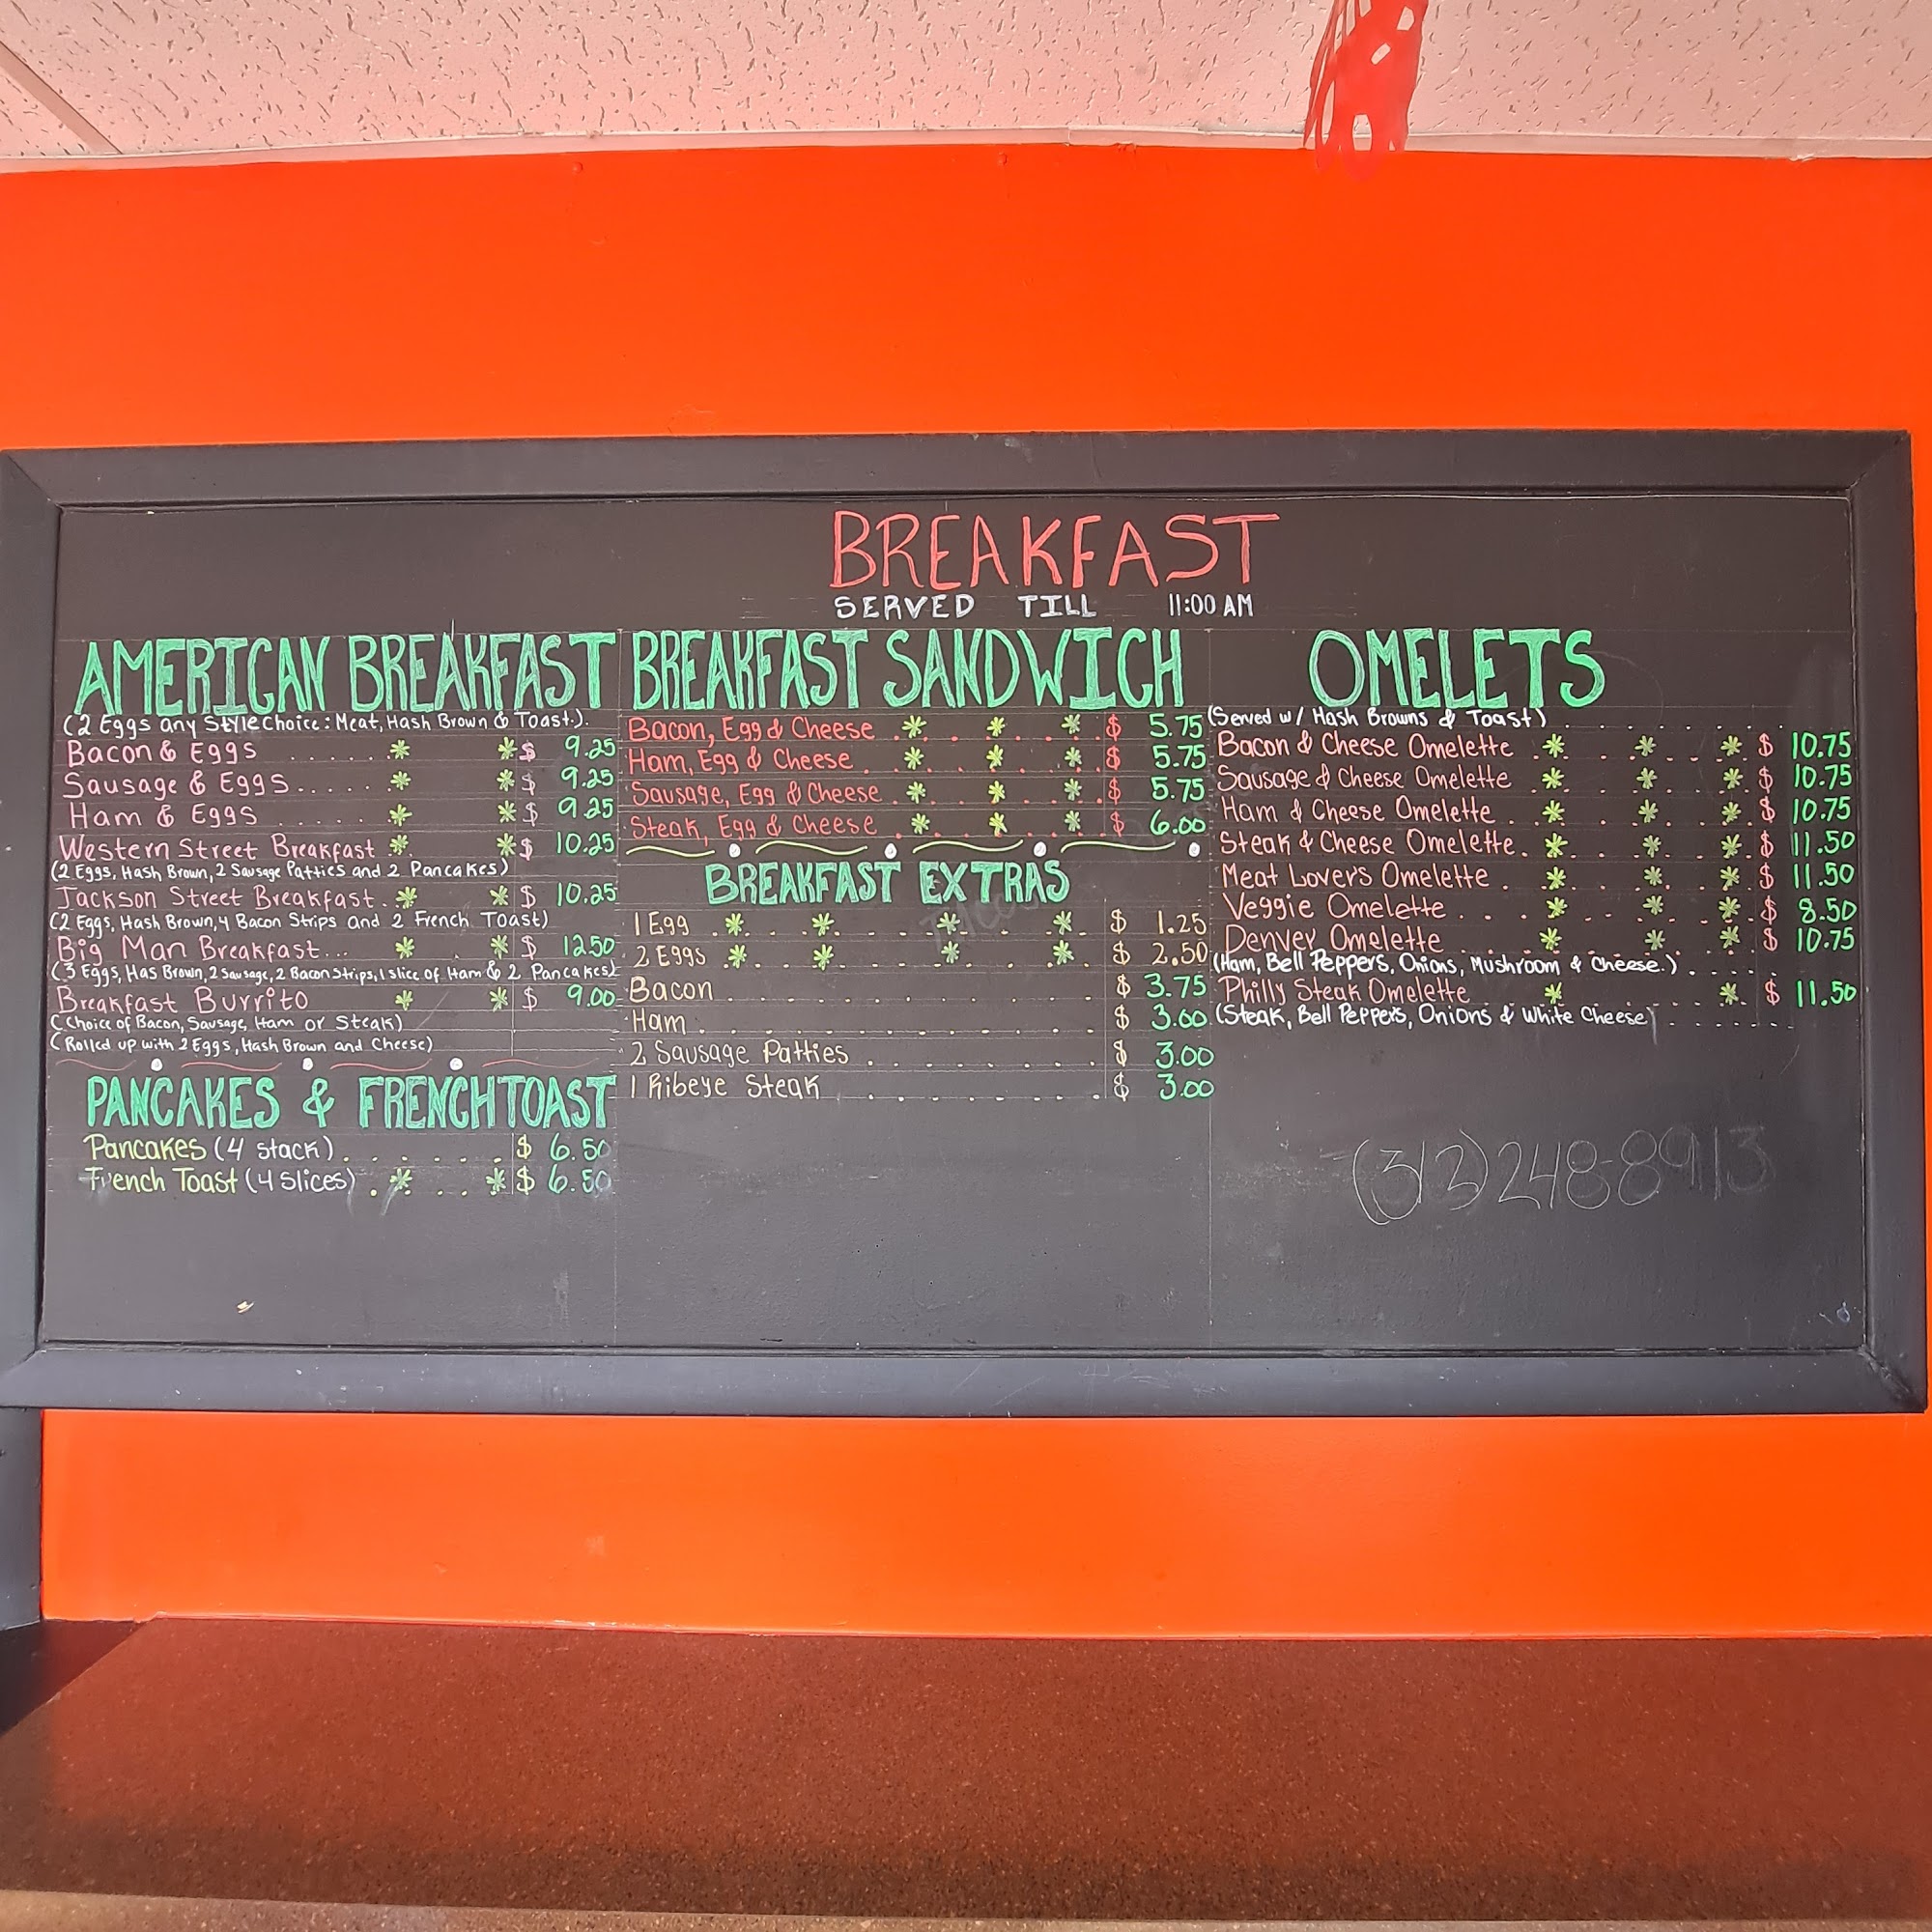 BREAKFAST
SERVED TILL 11:00 AM
AMERICAN BREAKFAST
(2 Eggs any Style Choice: Meat, Hash Brown & Toast.)
Bacon & Eggs $ 9.25
Sausage & Eggs $ 9.25
Ham & Eggs $ 9.25
Western Street Breakfast $ 10.25
(2 Eggs, Hash Brown, 2 Sausage Patties and 2 Pancakes)
Jackson Street Breakfast $ 10.25
(2 Eggs, Hash Brown, 4 Bacon Strips and 2 French Toast)
Big Man Breakfast $ 12.50
(3 Eggs, Has Brown, 2 Sausage, 2 Bacon Strips, 1 slice of Ham & 2 Pancakes)
Breakfast Burrito $ 9.00
(Choice of Bacon, Sausage, Ham or Steak)
(Rolled up with 2 Eggs, Hash Brown and Cheese)
PANCAKES & FRENCH TOAST
Pancakes (4 stack) $ 6.50
French Toast (4 slices) $ 6.50
BREAKFAST SANDWICH
Bacon, Egg & Cheese $ 5.75
Ham, Egg & Cheese $ 5.75
Sausage, Egg & Cheese $ 5.75
Steak, Egg & Cheese $ 6.00
BREAKFAST EXTRAS
1 Egg $ 1.25
2 Eggs $ 2.50
Bacon $ 3.75
Ham $ 3.00
2 Sausage Patties $ 3.00
1 Ribeye Steak $ 3.00
OMELETS
(Served w/ Hash Browns & Toast)
Bacon & Cheese Omelette $ 10.75
Sausage & Cheese Omelette $ 10.75
Ham & Cheese Omelette $ 10.75
Steak & Cheese Omelette $ 11.50
Meat Lovers Omelette $ 11.50
Veggie Omelette $ 8.50
Denver Omelette $ 10.75
(Ham, Bell Peppers, Onions, Mushroom & Cheese.)
Philly Steak Omelette $ 11.50
(Steak, Bell Peppers, Onions & White Cheese)
(312) 248-8913